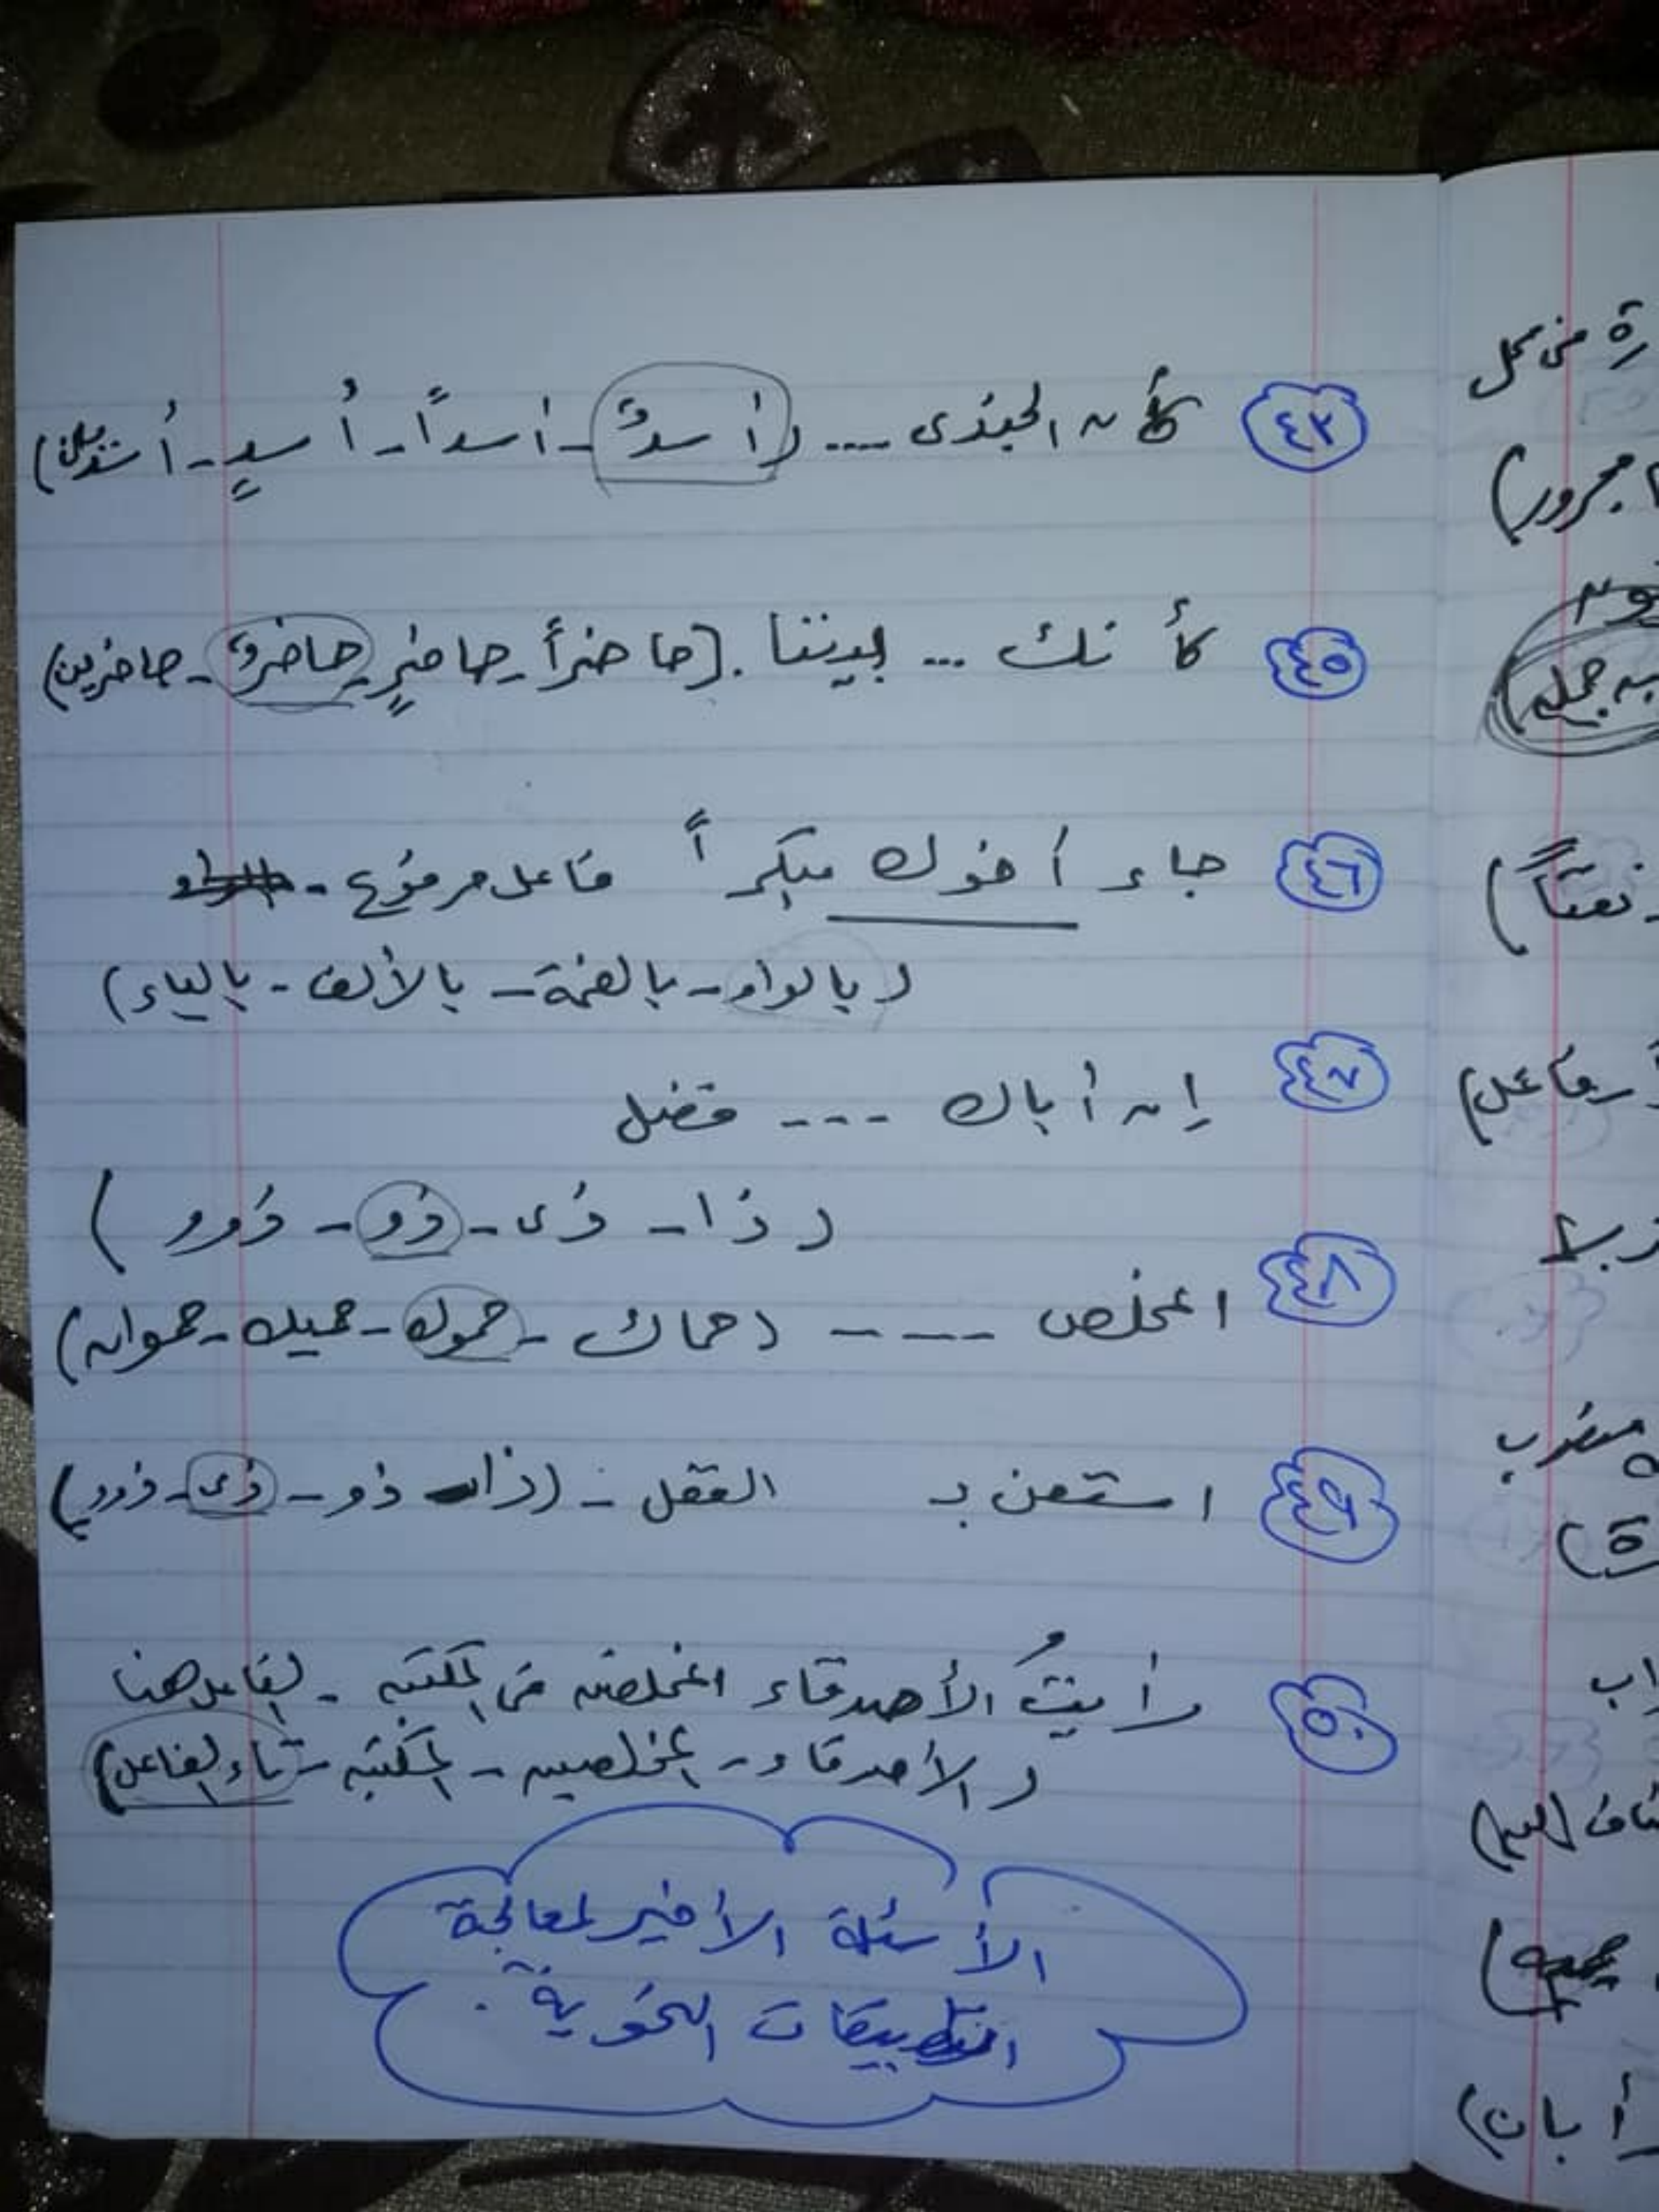 ٤٣ كأن الجندى .... (أسدٌ - أسداً - أُسدٍ - أُسدين)
٤٥ كأنك ... بيننا . (حاضراً - حاضرٍ - حاضرٌ - حاضرين)
٤٦ جاء أخوك مبكراً فاعل مرفوع -
(بالواو - بالضمة - بالألف - بالياء)
٤٧ إن أباك --- فضل
(ذا - ذى - ذو - ذوو)
٤٨ المخلص --- (حماك - حموك - حميك - حموان)
٤٩ استعن بـ العقل - (ذا - ذو - ذى - ذوو)
٥٠ رأيتُ الأصدقاء المخلصين فى المكتبه - الفاعل هنا
(الأصدقاء - المخلصين - المكتبه - تاء الفاعل)
الأسئلة الأخير لمعالجة
التطبيقات النحوية .
رة فى محل
مجرور)
به جملة)
نعتاً)
فاعل)
يضرب
رة)
أبان)